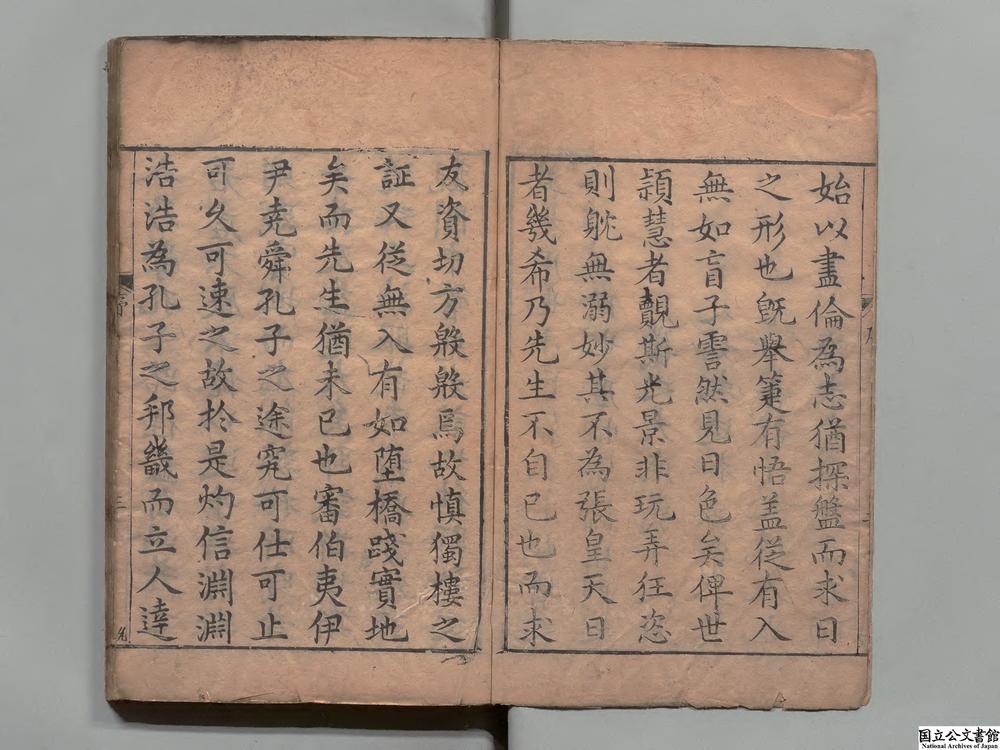 始以盡倫為志猶探盤而求日
之形也既舉箑有悟盖従有入
無如盲子霅然見日色矣俾世
頴慧者覿斯光景非玩弄狂恣
則躭無溺妙其不為張皇天日
者幾希乃先生不自已也而求
友資切方殷殷焉故慎獨樓之
証又従無入有如堕橋踐實地
矣而先生猶未已也審伯夷伊
尹堯舜孔子之途究可仕可止
可久可速之故扵是灼信淵淵
浩浩為孔子之邦畿而立人達
序
三
国立公文書館
National Archives of Japan